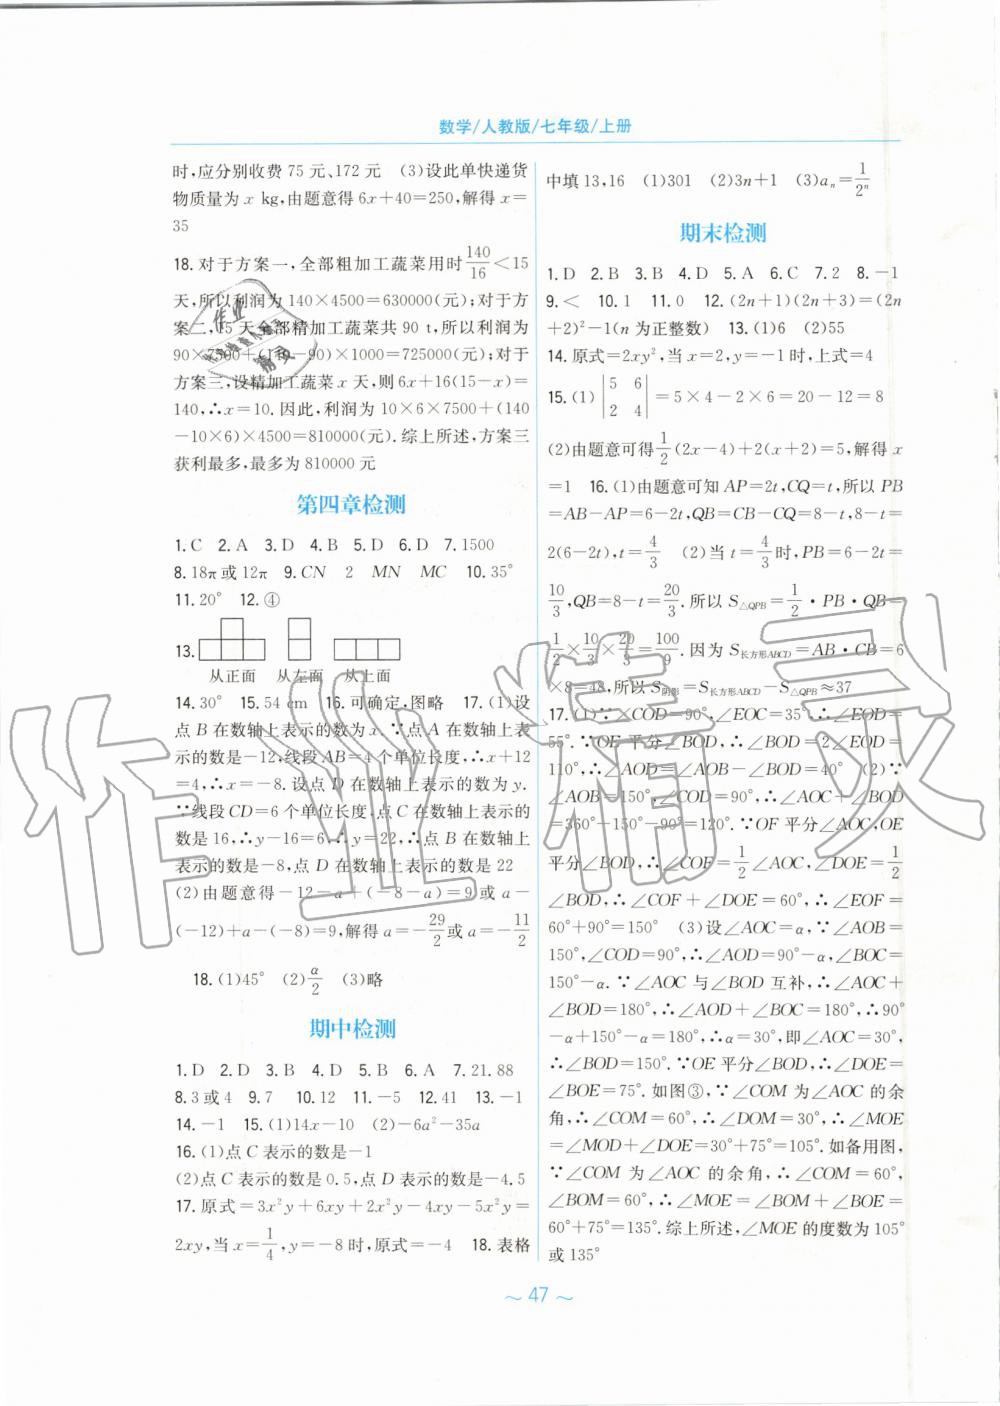 数学/人教版/七年级/上册
时,应分别收费 75 元、172 元　(3)设此单快递货
物质量为 x kg,由题意得 6x+40=250,解得 x=
35
18. 对于方案一,全部粗加工蔬菜用时 140/16 <15
天,所以利润为 140×4500=630000(元);对于方
案二,15 天全部精加工蔬菜共 90 t,所以利润为
90×7500+(140-90)×1000=725000(元);对于
方案三,设精加工蔬菜 x 天,则 6x+16(15-x)=
140,∴x=10. 因此,利润为 10×6×7500+(140
-10×6)×4500=810000(元). 综上所述,方案三
获利最多,最多为 810000 元
第四章检测
1. C　2. A　3. D　4. B　5. D　6. D　7. 1500
8. 18π或 12π　9. CN　2　MN　MC　10. 35°
11. 20°　12. ④
13.
从正面　从左面　从上面
14. 30°　15. 54 cm　16. 可确定,图略　17. (1)设
点 B 在数轴上表示的数为 x. ∵点 A 在数轴上表
示的数是-12,线段 AB=4 个单位长度,∴x+12
=4,∴x=-8. 设点 D 在数轴上表示的数为 y.
∵线段 CD=6 个单位长度,点 C 在数轴上表示的
数是 16,∴y-16=6,∴y=22,∴点 B 在数轴上
表示的数是-8,点 D 在数轴上表示的数是 22
(2)由题意得-12-a+(-8-a)=9 或 a-
(-12)+a-(-8)=9,解得 a=-29/2 或 a=-11/2
18. (1)45°　(2) α/2　(3)略
期中检测
1. D　2. D　3. B　4. D　5. C　6. A　7. 21.88
8. 3 或 4　9. 7　10. 12　11. -5　12. 41　13. -1
14. -1　15. (1)14x-10　(2)-6a²-35a
16. (1)点 C 表示的数是-1
(2)点 C 表示的数是 0.5,点 D 表示的数是-4.5
17. 原式=3x²y+6xy+2x²y-4xy-5x²y=
2xy,当 x=1/4,y=-8 时,原式=-4　18. 表格
中填 13,16　(1)301　(2)3n+1　(3)aₙ=1/2ⁿ
期末检测
1. D　2. B　3. B　4. D　5. A　6. C　7. 2　8. -1
9. <　10. 1　11. 0　12. (2n+1)(2n+3)=(2n
+2)²-1(n 为正整数)　13. (1)6　(2)55
14. 原式=2xy²,当 x=2,y=-1 时,上式=4
15. (1) |5 6; 2 4| =5×4-2×6=20-12=8
(2)由题意可得 1/2(2x-4)+2(x+2)=5,解得 x
=1　16. (1)由题意可知 AP=2t,CQ=t,所以 PB
=AB-AP=6-2t,QB=CB-CQ=8-t,8-t=
2(6-2t),t=4/3　(2)当 t=4/3 时,PB=6-2t=
10/3,QB=8-t=20/3. 所以 S△QPB=1/2·PB·QB=
1/2×10/3×20/3=100/9. 因为 S长方形ABCD=AB·CB=6
×8=48,所以 S阴影=S长方形ABCD-S△QPB≈37
17. (1)∵∠COD=90°,∠EOC=35°,∴∠EOD=
55°. ∵OE 平分∠BOD,∴∠BOD=2∠EOD=
110°,∴∠AOD=∠AOB-∠BOD=40°　(2)∵
∠AOB=150°,∠COD=90°,∴∠AOC+∠BOD
=360°-150°-90°=120°. ∵OF 平分∠AOC,OE
平分∠BOD,∴∠COF=1/2∠AOC,∠DOE=1/2
∠BOD,∴∠COF+∠DOE=60°,∴∠EOF=
60°+90°=150°　(3)设∠AOC=α,∵∠AOB=
150°,∠COD=90°,∴∠AOD=90°-α,∠BOC=
150°-α. ∵∠AOC 与∠BOD 互补,∴∠AOC+
∠BOD=180°,∴∠AOD+∠BOC=180°,∴90°
-α+150°-α=180°,∴α=30°,即∠AOC=30°,
∴∠BOD=150°. ∵OE 平分∠BOD,∴∠DOE=
∠BOE=75°. 如图③,∵∠COM 为∠AOC 的余
角,∴∠COM=60°,∴∠DOM=30°,∴∠MOE
=∠MOD+∠DOE=30°+75°=105°. 如备用图,
∵∠COM 为∠AOC 的余角,∴∠COM=60°,
∠BOM=60°,∴∠MOE=∠BOM+∠BOE=
60°+75°=135°. 综上所述,∠MOE 的度数为 105°
或 135°
～ 47 ～
作业精灵